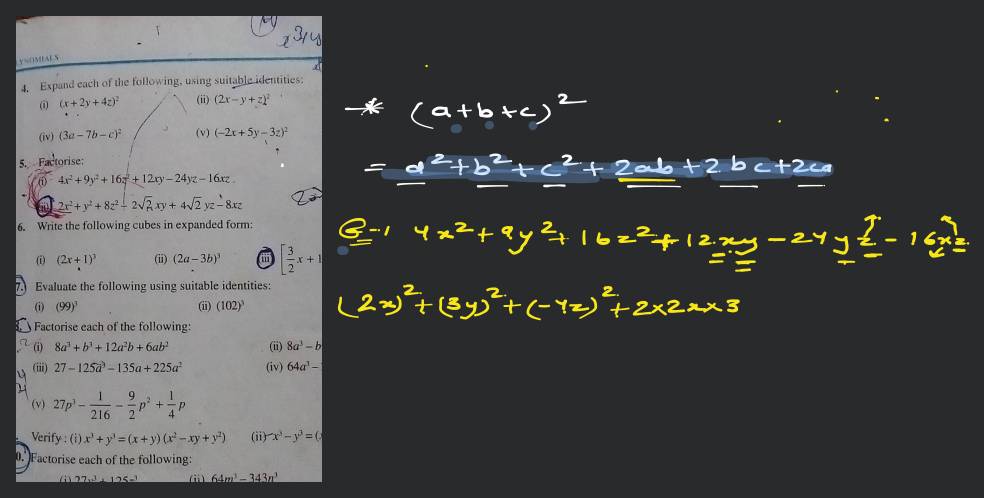 LYNOMIALS
4. Expand each of the following, using suitable identities:
(i) (x+2y+4z)² (ii) (2x−y+z)²
(iv) (3a−7b−c)² (v) (−2x+5y−3z)²
5. Factorise:
(i) 4x²+9y²+16z²+12xy−24yz−16xz
(ii) 2x²+y²+8z²−2√2 xy+4√2 yz−8xz
6. Write the following cubes in expanded form:
(i) (2x+1)³ (ii) (2a−3b)³ (iii) [3/2 x+1
7. Evaluate the following using suitable identities:
(i) (99)³ (ii) (102)³
Factorise each of the following:
(i) 8a³+b³+12a²b+6ab² (ii) 8a³−b
(iii) 27−125a³−135a+225a² (iv) 64a³−
(v) 27p³ − 1/216 − 9/2 p² + 1/4 p
Verify : (i) x³+y³=(x+y)(x²−xy+y²) (ii) x³−y³=(
0. Factorise each of the following:
(i) 27y³+125z³ (ii) 64m³−343n³
* (a+b+c)²
= a²+b²+c²+2ab+2bc+2ca
Q-1 4x²+9y²+16z²+12xy−24yz−16xz
(2x)²+(3y)²+(−4z)²+2×2x×3